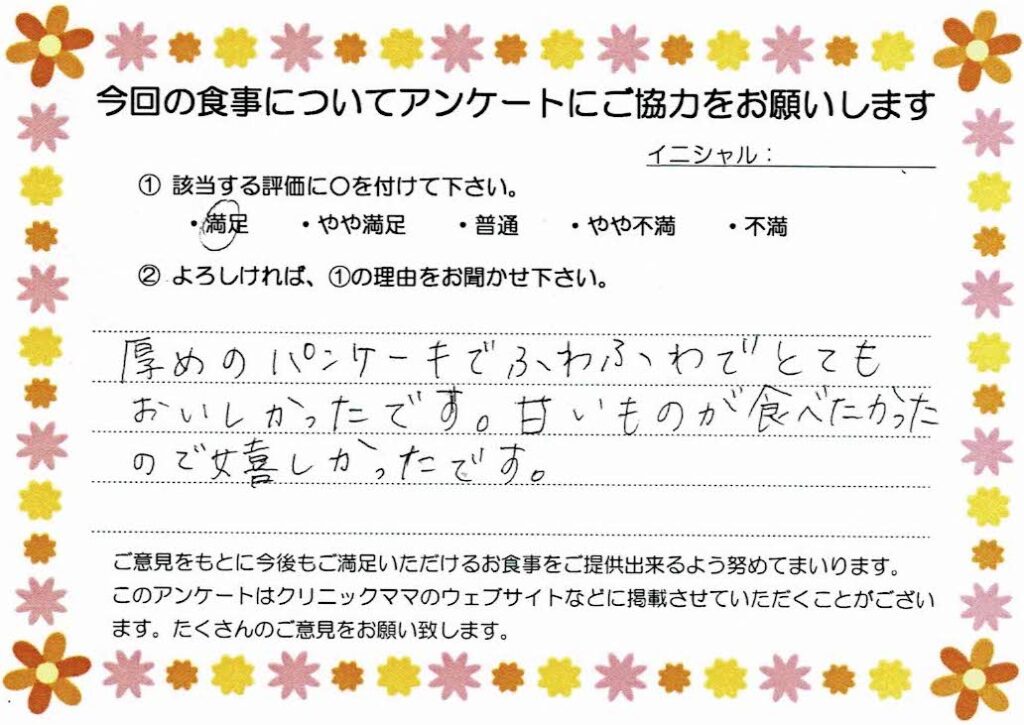 今回の食事についてアンケートにご協力をお願いします
イニシャル：
① 該当する評価に〇を付けて下さい。
・満足 ・やや満足 ・普通 ・やや不満 ・不満
② よろしければ、①の理由をお聞かせ下さい。
厚めのパンケーキでふわふわでとても
おいしかったです。甘いものが食べたかった
ので嬉しかったです。
ご意見をもとに今後もご満足いただけるお食事をご提供出来るよう努めてまいります。
このアンケートはクリニックママのウェブサイトなどに掲載させていただくことがござい
ます。たくさんのご意見をお願い致します。